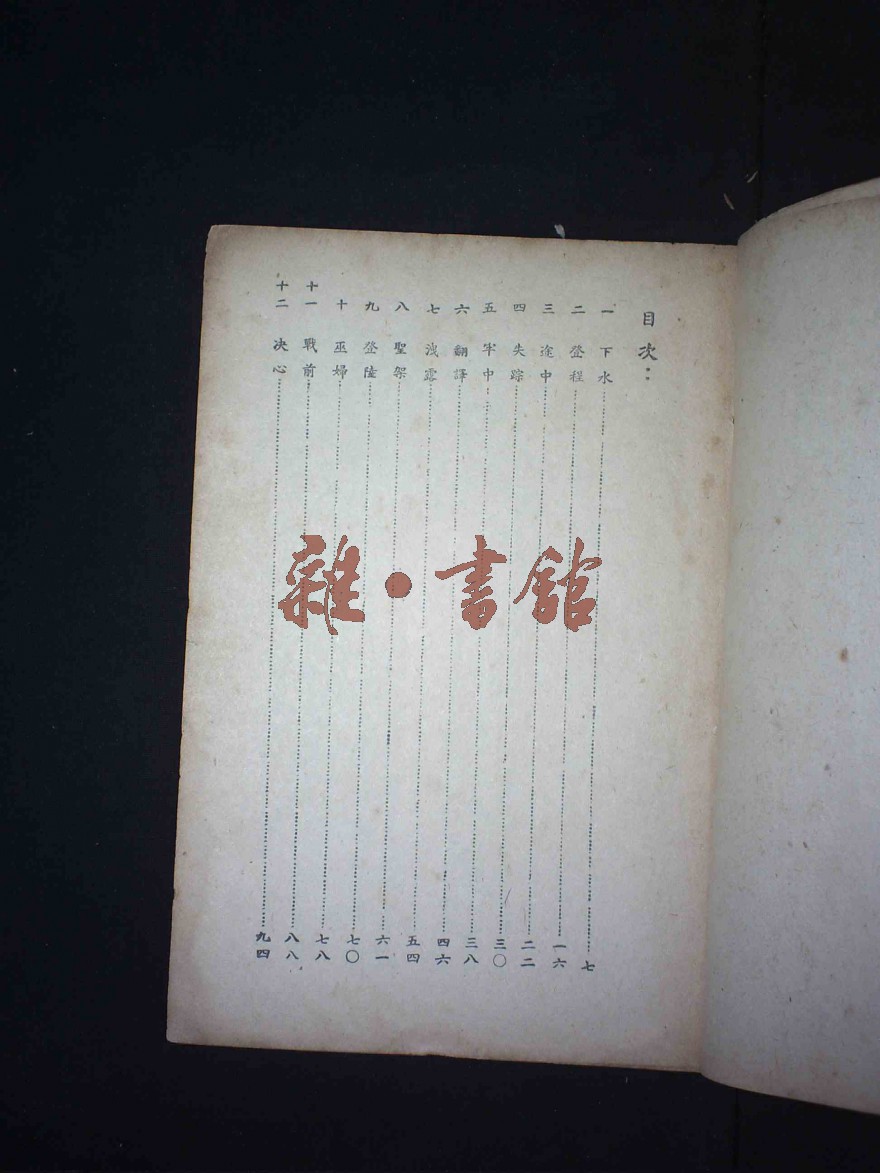 目次：
一　下水……七
二　登程……一六
三　途中……二二
四　失踪……三〇
五　牢中……三八
六　翻譯……四六
七　洩露……五四
八　聖架……六一
九　登陸……七〇
十　巫婦……七八
十一　戰前……八八
十二　决心……九四
雜・書館